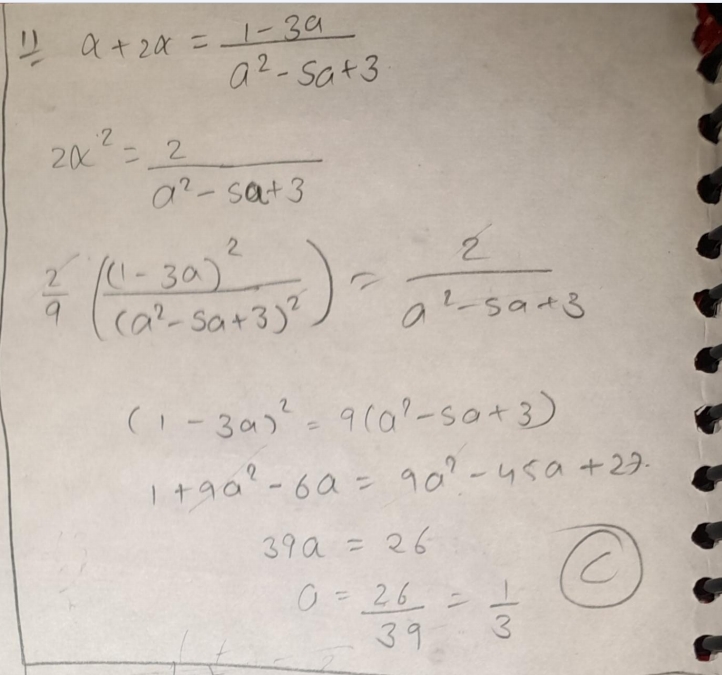 11) α + 2α = (1 - 3a)/(a² - 5a + 3)
2α² = 2/(a² - 5a + 3)
2/9 ((1 - 3a)²/(a² - 5a + 3)²) = 2/(a² - 5a + 3)
(1 - 3a)² = 9(a² - 5a + 3)
1 + 9a² - 6a = 9a² - 45a + 27.
39a = 26
a = 26/39 = 1/3
C